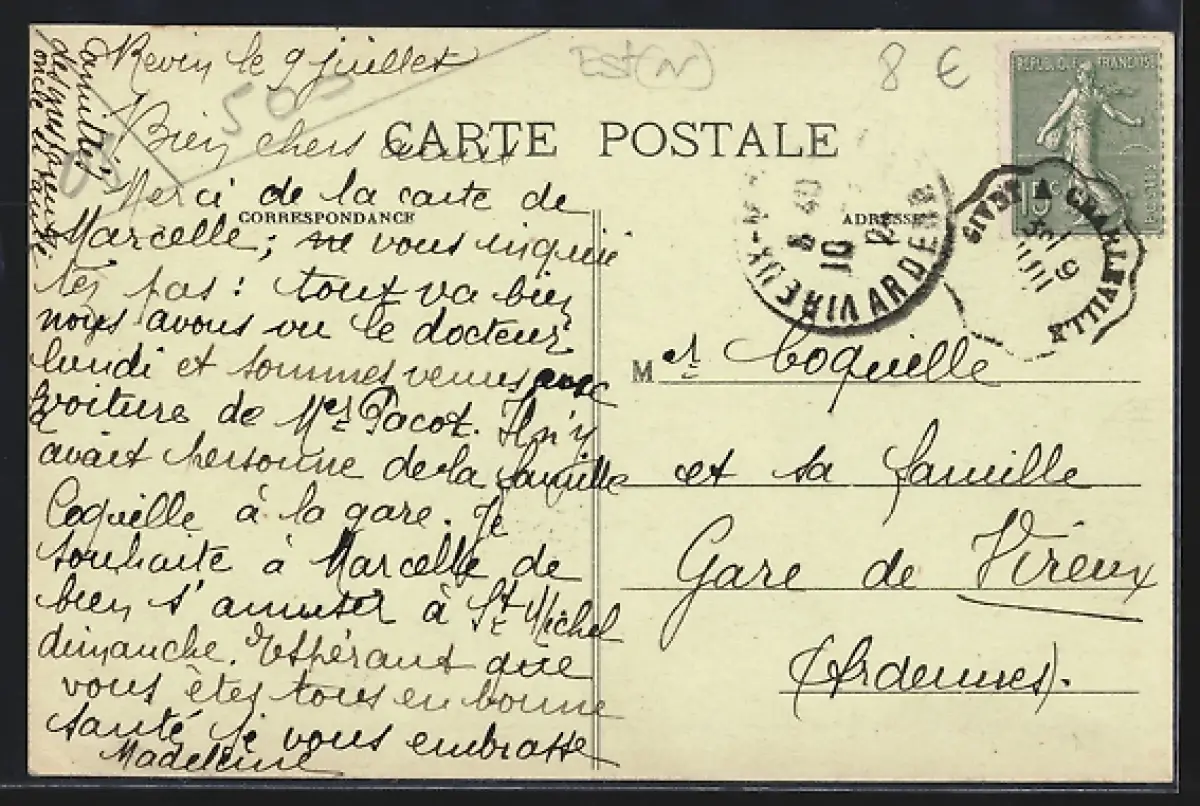 Revin le 9 juillet
Bien chers amis
Merci de la carte de
Marcelle; ne vous inquié
tez pas: tout va bien
nous avons vu le docteur
lundi et sommes venus avec
voiture de Mer Pacot. Il n'y
avait personne de la famille
Coquille à la gare. Je
souhaite à Marcelle de
bien s'amuser à St Michel
dimanche. Espérant que
vous êtes tous en bonne
santé je vous embrasse
Madeleine
oncle et tante
500
Est (N)
8 €
CARTE POSTALE
CORRESPONDANCE
ADRESSE
REPUBLIQUE FRANÇAISE
15c
VIREUX
ARDENNES
8 40
10
GIVET A CHARLEVILLE
9
Mer Coquille
et sa famille
Gare de Vireux
(Ardennes).